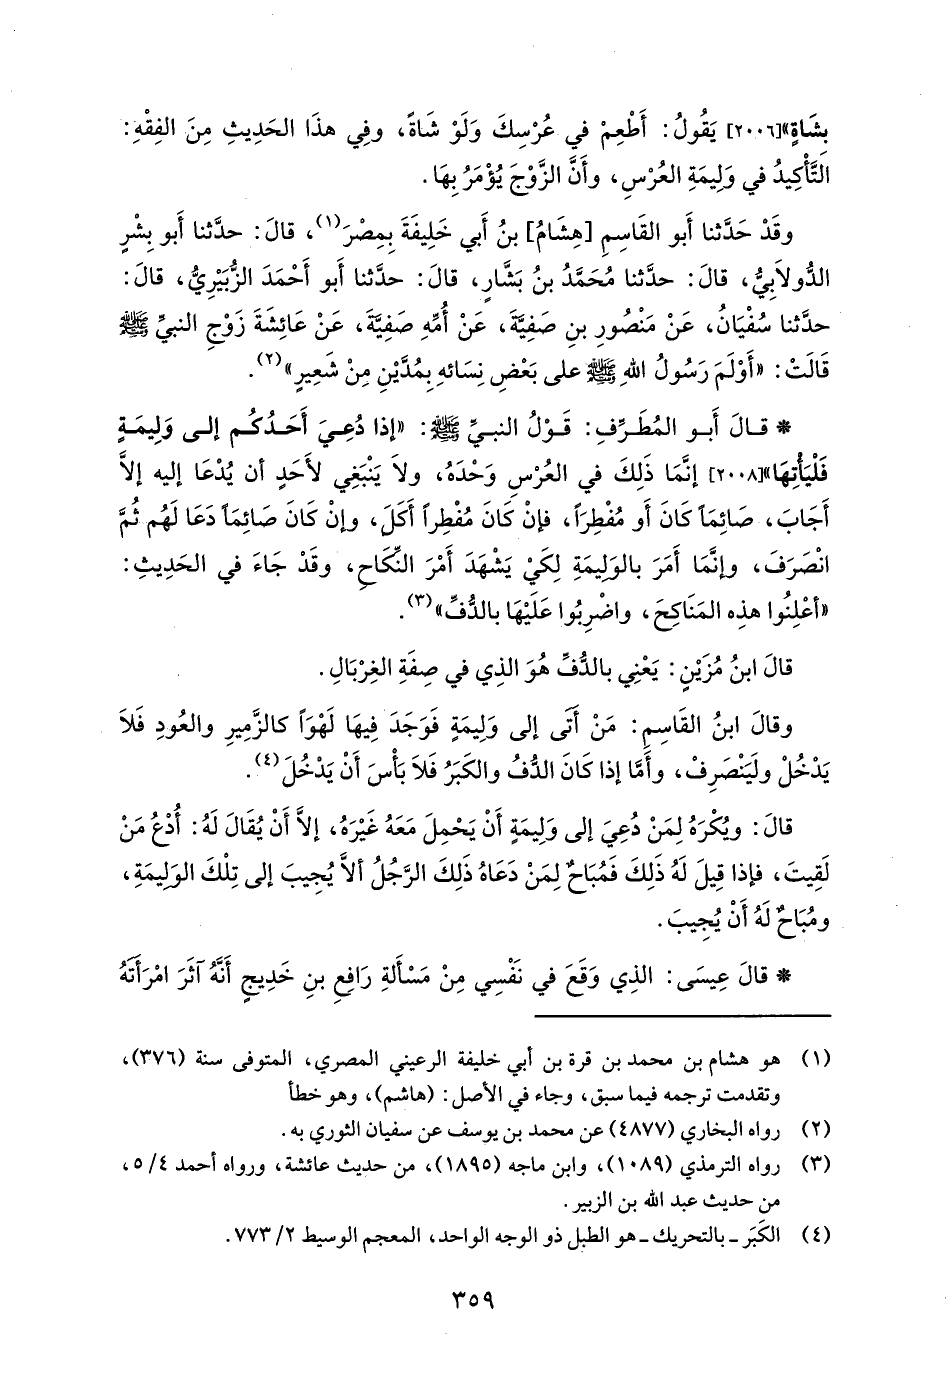 بِشَاةٍ»[٢٠٠٦] يَقُولُ: أَطْعِمْ في عُرْسِكَ وَلَوْ شَاةً، وفِي هذَا الحَدِيثِ مِنَ الفِقْهِ:
التَّأْكِيدُ في وَلِيمَةِ العُرْسِ، وأَنَّ الزَّوْجَ يُؤْمَرُ بِهَا.
وقَدْ حَدَّثنا أبو القَاسِمِ [هِشَامُ] بنُ أَبي خَلِيفَةَ بِمِصْرَ(١)، قالَ: حدَّثنا أَبو بِشْرٍ
الدُّولاَبِيُّ، قالَ: حدَّثنا مُحَمَّدُ بنُ بَشَّارٍ، قالَ: حدَّثنا أبو أَحْمَدَ الزُّبَيْرِيُّ، قالَ:
حدَّثنا سُفْيَانُ، عَنْ مَنْصُورِ بنِ صَفِيَّةَ، عَنْ أُمِّهِ صَفِيَّةَ، عَنْ عَائِشَةَ زَوْجِ النبيِّ ﷺ
قَالَتْ: «أَوْلَمَ رَسُولُ اللهِ ﷺ على بَعْضِ نِسَائهِ بِمُدَّيْنِ مِنْ شَعِيرٍ»(٢).
* قـالَ أبـو المُطَـرِّفِ: قَـوْلُ النبـيِّ ﷺ: «إذا دُعِـيَ أَحَـدُكُـم إلـى وَلِيمَـةٍ
فَلْيَأْتِهَا»[٢٠٠٨] إنَّمَا ذَلِكَ في العُرْسِ وَحْدَهُ، ولاَ يَنْبَغِي لأَحَدٍ أن يُدْعَا إليه إلاَّ
أَجَابَ، صَائِمَاً كَانَ أو مُفْطِرَاً، فإنْ كَانَ مُفْطِراً أَكَلَ، وإنْ كَانَ صَائِمَاً دَعَا لَهُم ثُمَّ
انْصَرَفَ، وإنَّمَا أَمَرَ بالوَلِيمَةِ لِكَيْ يَشْهَدَ أَمْرَ النِّكَاحِ، وقَدْ جَاءَ في الحَدِيثِ:
«أَعْلِنُوا هذِه المَنَاكِحَ، واضْرِبُوا عَلَيْهَا بالدُّفِّ»(٣).
قالَ ابنُ مُزَيْنٍ: يَعْنِي بالدُّفِّ هُوَ الذِي في صِفَةِ الغِرْبَالِ.
وقالَ ابنُ القَاسِمِ: مَنْ أَتَى إلى وَلِيمَةٍ فَوَجَدَ فِيهَا لَهْوَاً كالزَّمِيرِ والعُودِ فَلاَ
يَدْخُلْ ولْيَنْصَرِفْ، وأَمَّا إذا كَانَ الدُّفُّ والكَبَرُ فَلاَ بَأْسَ أَنْ يَدْخُلَ(٤).
قالَ: ويُكْرَهُ لِمَنْ دُعِيَ إلى وَلِيمَةٍ أَنْ يَحْمِلَ مَعَهُ غَيْرَهُ، إلاَّ أَنْ يُقَالَ لَهُ: أُدْعُ مَنْ
لَقِيتَ، فإذا قِيلَ لَهُ ذَلِكَ فَمُبَاحٌ لِمَنْ دَعَاهُ ذَلِكَ الرَّجُلُ ألاَّ يُجِيبَ إلى تِلْكَ الوَلِيمَةِ،
ومُبَاحٌ لَهُ أَنْ يُجِيبَ.
* قالَ عِيسَى: الذِي وَقَعَ في نَفْسِي مِنْ مَسْأَلةِ رَافِعِ بنِ خَدِيجٍ أَنَّهُ آثَرَ امْرَأَتَهُ
(١) هو هشام بن محمد بن قرة بن أبي خليفة الرعيني المصري، المتوفى سنة (٣٧٦)،
وتقدمت ترجمه فيما سبق، وجاء في الأصل: (هاشم)، وهو خطأ
(٢) رواه البخاري (٤٨٧٧) عن محمد بن يوسف عن سفيان الثوري به.
(٣) رواه الترمذي (١٠٨٩)، وابن ماجه (١٨٩٥)، من حديث عائشة، ورواه أحمد ٤/ ٥،
من حديث عبد الله بن الزبير.
(٤) الكَبَر ـ بالتحريك ـ هو الطبل ذو الوجه الواحد، المعجم الوسيط ٢/ ٧٧٣.
٣٥٩